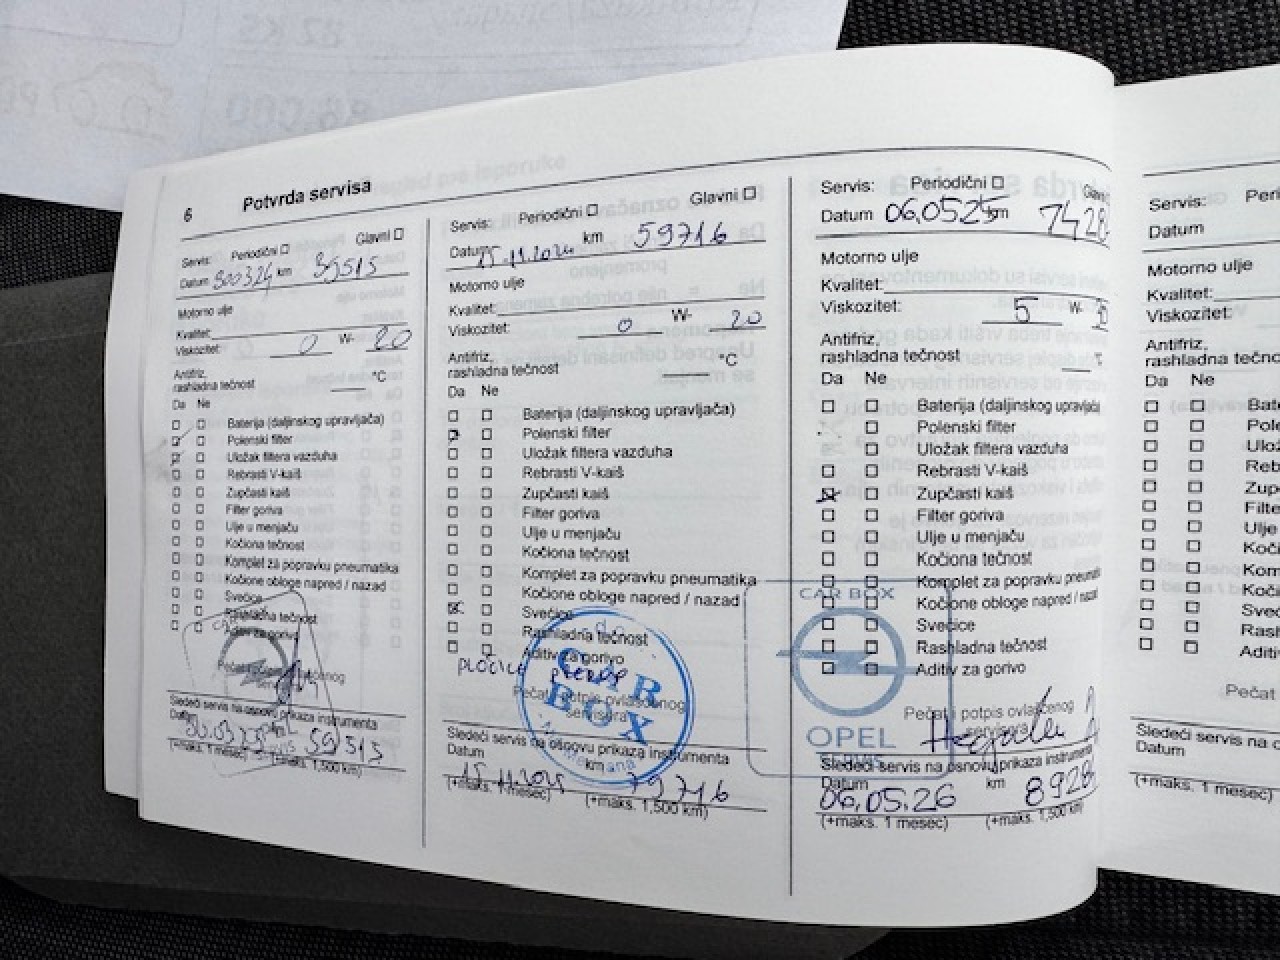 6 Potvrda servisa
Servis: Periodični Glavni
Datum 300324 km 39515
Motorno ulje
Kvalitet:
Viskozitet: 0 W- 20
Antifriz,
rashladna tečnost °C
Da Ne
Baterija (daljinskog upravljača)
Polenski filter
Uložak filtera vazduha
Rebrasti V-kaiš
Zupčasti kaiš
Filter goriva
Ulje u menjaču
Kočiona tečnost
Komplet za popravku pneumatika
Kočione obloge napred / nazad
Svećice
Rashladna tečnost
Aditiv za gorivo
Sledeći servis na osnovu prikaza instrumenta
Datum km
30.03.25 59515
(+maks. 1 mesec) (+maks. 1,500 km)
Servis: Periodični Glavni
Datum 15.11.2024 km 59716
Motorno ulje
Kvalitet:
Viskozitet: 0 W- 20
Antifriz,
rashladna tečnost °C
Da Ne
Baterija (daljinskog upravljača)
Polenski filter
Uložak filtera vazduha
Rebrasti V-kaiš
Zupčasti kaiš
Filter goriva
Ulje u menjaču
Kočiona tečnost
Komplet za popravku pneumatika
Kočione obloge napred / nazad
Svećice
Rashladna tečnost
Aditiv za gorivo
PLOČICE
Pečat i potpis ovlašćenog
servisera
CAR
BOX
Sledeći servis na osnovu prikaza instrumenta
Datum km
15.11.2025 79716
(+maks. 1 mesec) (+maks. 1,500 km)
Servis: Periodični Glavni
Datum 06.0525 km 7428
Motorno ulje
Kvalitet:
Viskozitet: 5 W-
Antifriz,
rashladna tečnost
Da Ne
Baterija (daljinskog upravljač
Polenski filter
Uložak filtera vazduha
Rebrasti V-kaiš
Zupčasti kaiš
Filter goriva
Ulje u menjaču
Kočiona tečnost
Komplet za popravku pneumati
CAR BOX
Kočione obloge napred / naza
Svećice
Rashladna tečnost
Aditiv za gorivo
Pečat i potpis ovlašćenog
servisera
OPEL
Sledeći servis na osnovu prikaza instrument
Datum km
06.05.26 8928
(+maks. 1 mesec) (+maks. 1,500 km)
Servis: Peri
Datum
Motorno ulje
Kvalitet:
Viskozitet:
Antifriz,
rashladna tečno
Da Ne
Bate
Pole
Ulo
Reb
Zup
Filte
Ulje
Koči
Kom
Koči
Sveć
Rash
Aditi
Pečat
Sledeći servis na o
Datum
(+maks. 1 mesec)